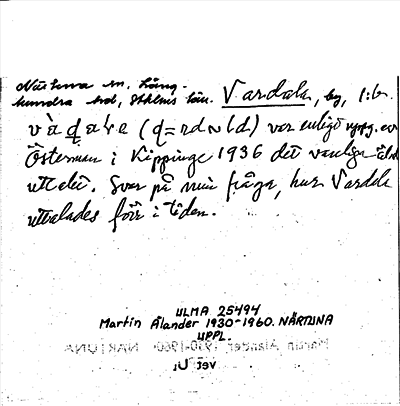 Närtuna sn, Lång-
hundra hd, Sthlms län. Vardala, by, 1:6.
vàqare (q=rd~ld) var enligt uppg. av
Österman i Kippinge 1936 det vanliga äld
uttalet. Svar på min fråga, hur Vardala
uttalades förr i tiden.
ULMA 25494
Martin Ålander 1930-1960. NÄRTUNA
UPPL.
Martin Ålander 1930-1960 NÄRTUNA